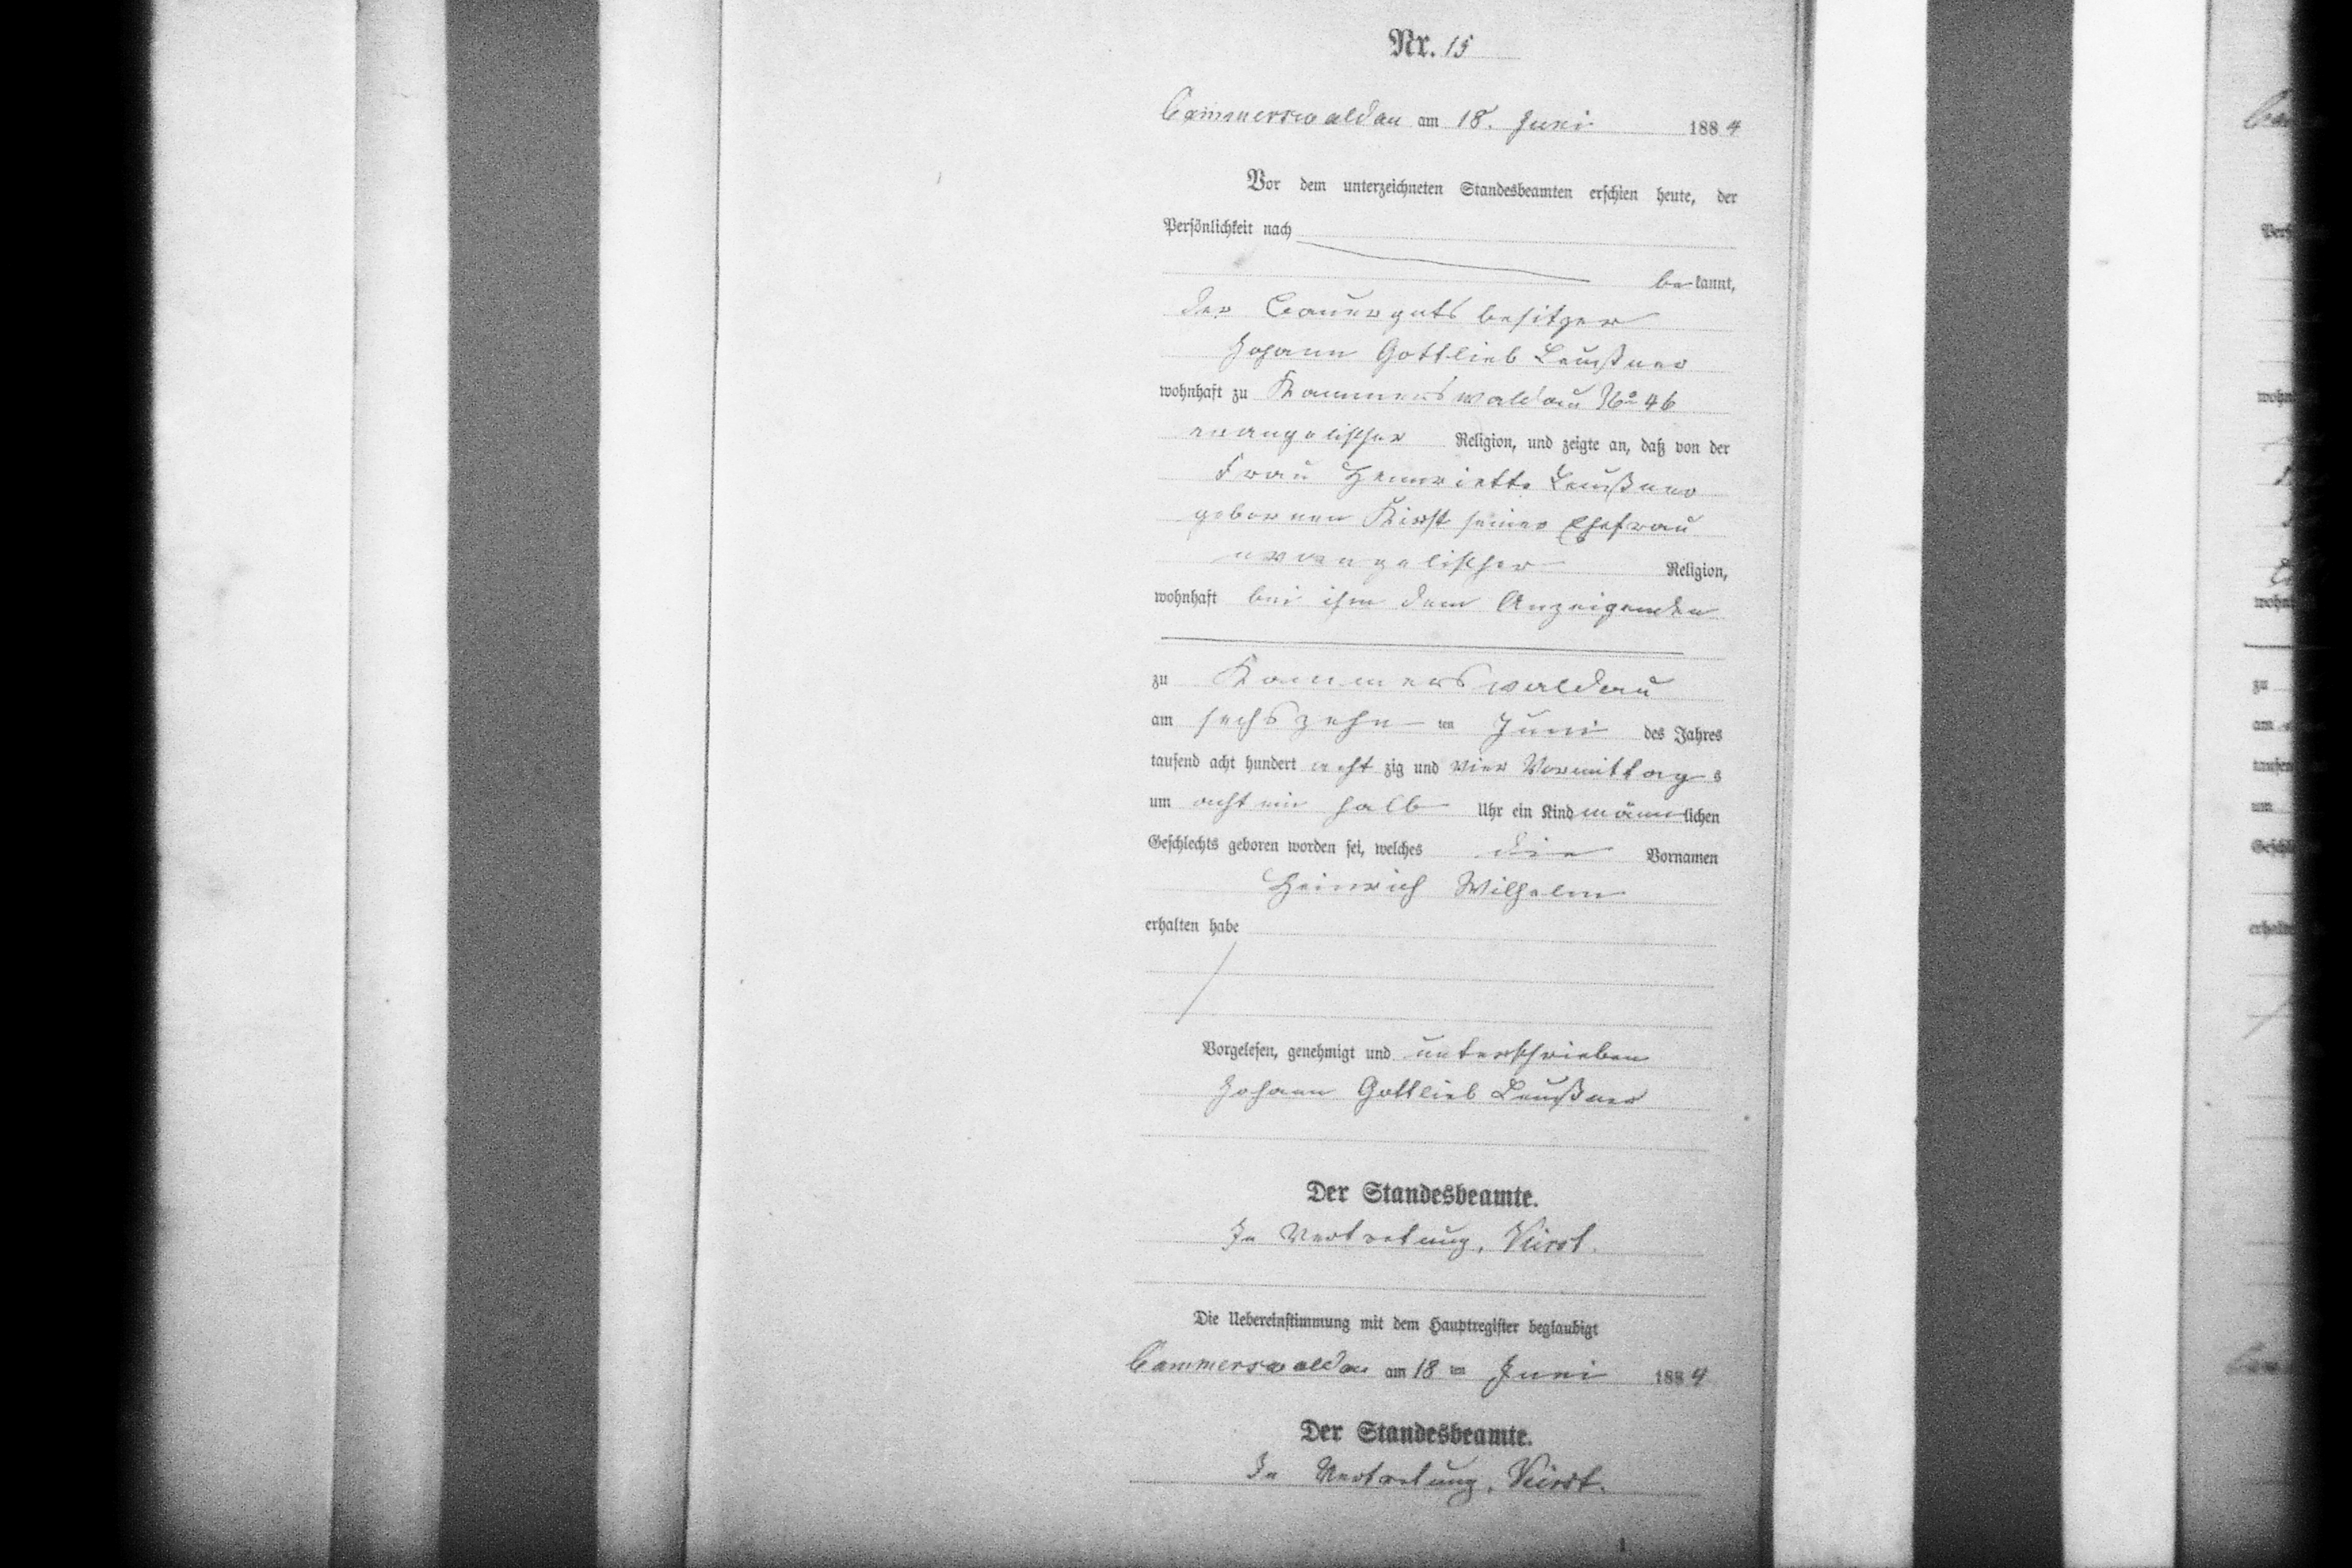 Nr. 15
Cammerswaldau am 18. Juni 1884
Vor dem unterzeichneten Standesbeamten erschien heute, der
Persönlichkeit nach
be kannt,
der Bauergutsbesitzer
Johann Gottlieb Leußner
wohnhaft zu Kammerswaldau No 46
evangelischer Religion, und zeigte an, daß von der
Frau Hennriette Leußner
gebornen Kirst seiner Ehefrau
evangelischer Religion,
wohnhaft bei ihm dem Anzeigenden
zu Kammerswaldau
am sechszehn ten Juni des Jahres
tausend acht hundert acht zig und vier Vormittag s
um acht ein halb Uhr ein Kind männ lichen
Geschlechts geboren worden sei, welches die Vornamen
Heinrich Wilhelm
erhalten habe
Vorgelesen, genehmigt und unterschrieben
Johann Gottlieb Leußner
Der Standesbeamte.
In Vertretung, Kirst.
Die Uebereinstimmung mit dem Hauptregister beglaubigt
Cammerswaldau am 18 ten Juni 1884
Der Standesbeamte.
In Vertretung, Kirst.
wohn
zu
am
um